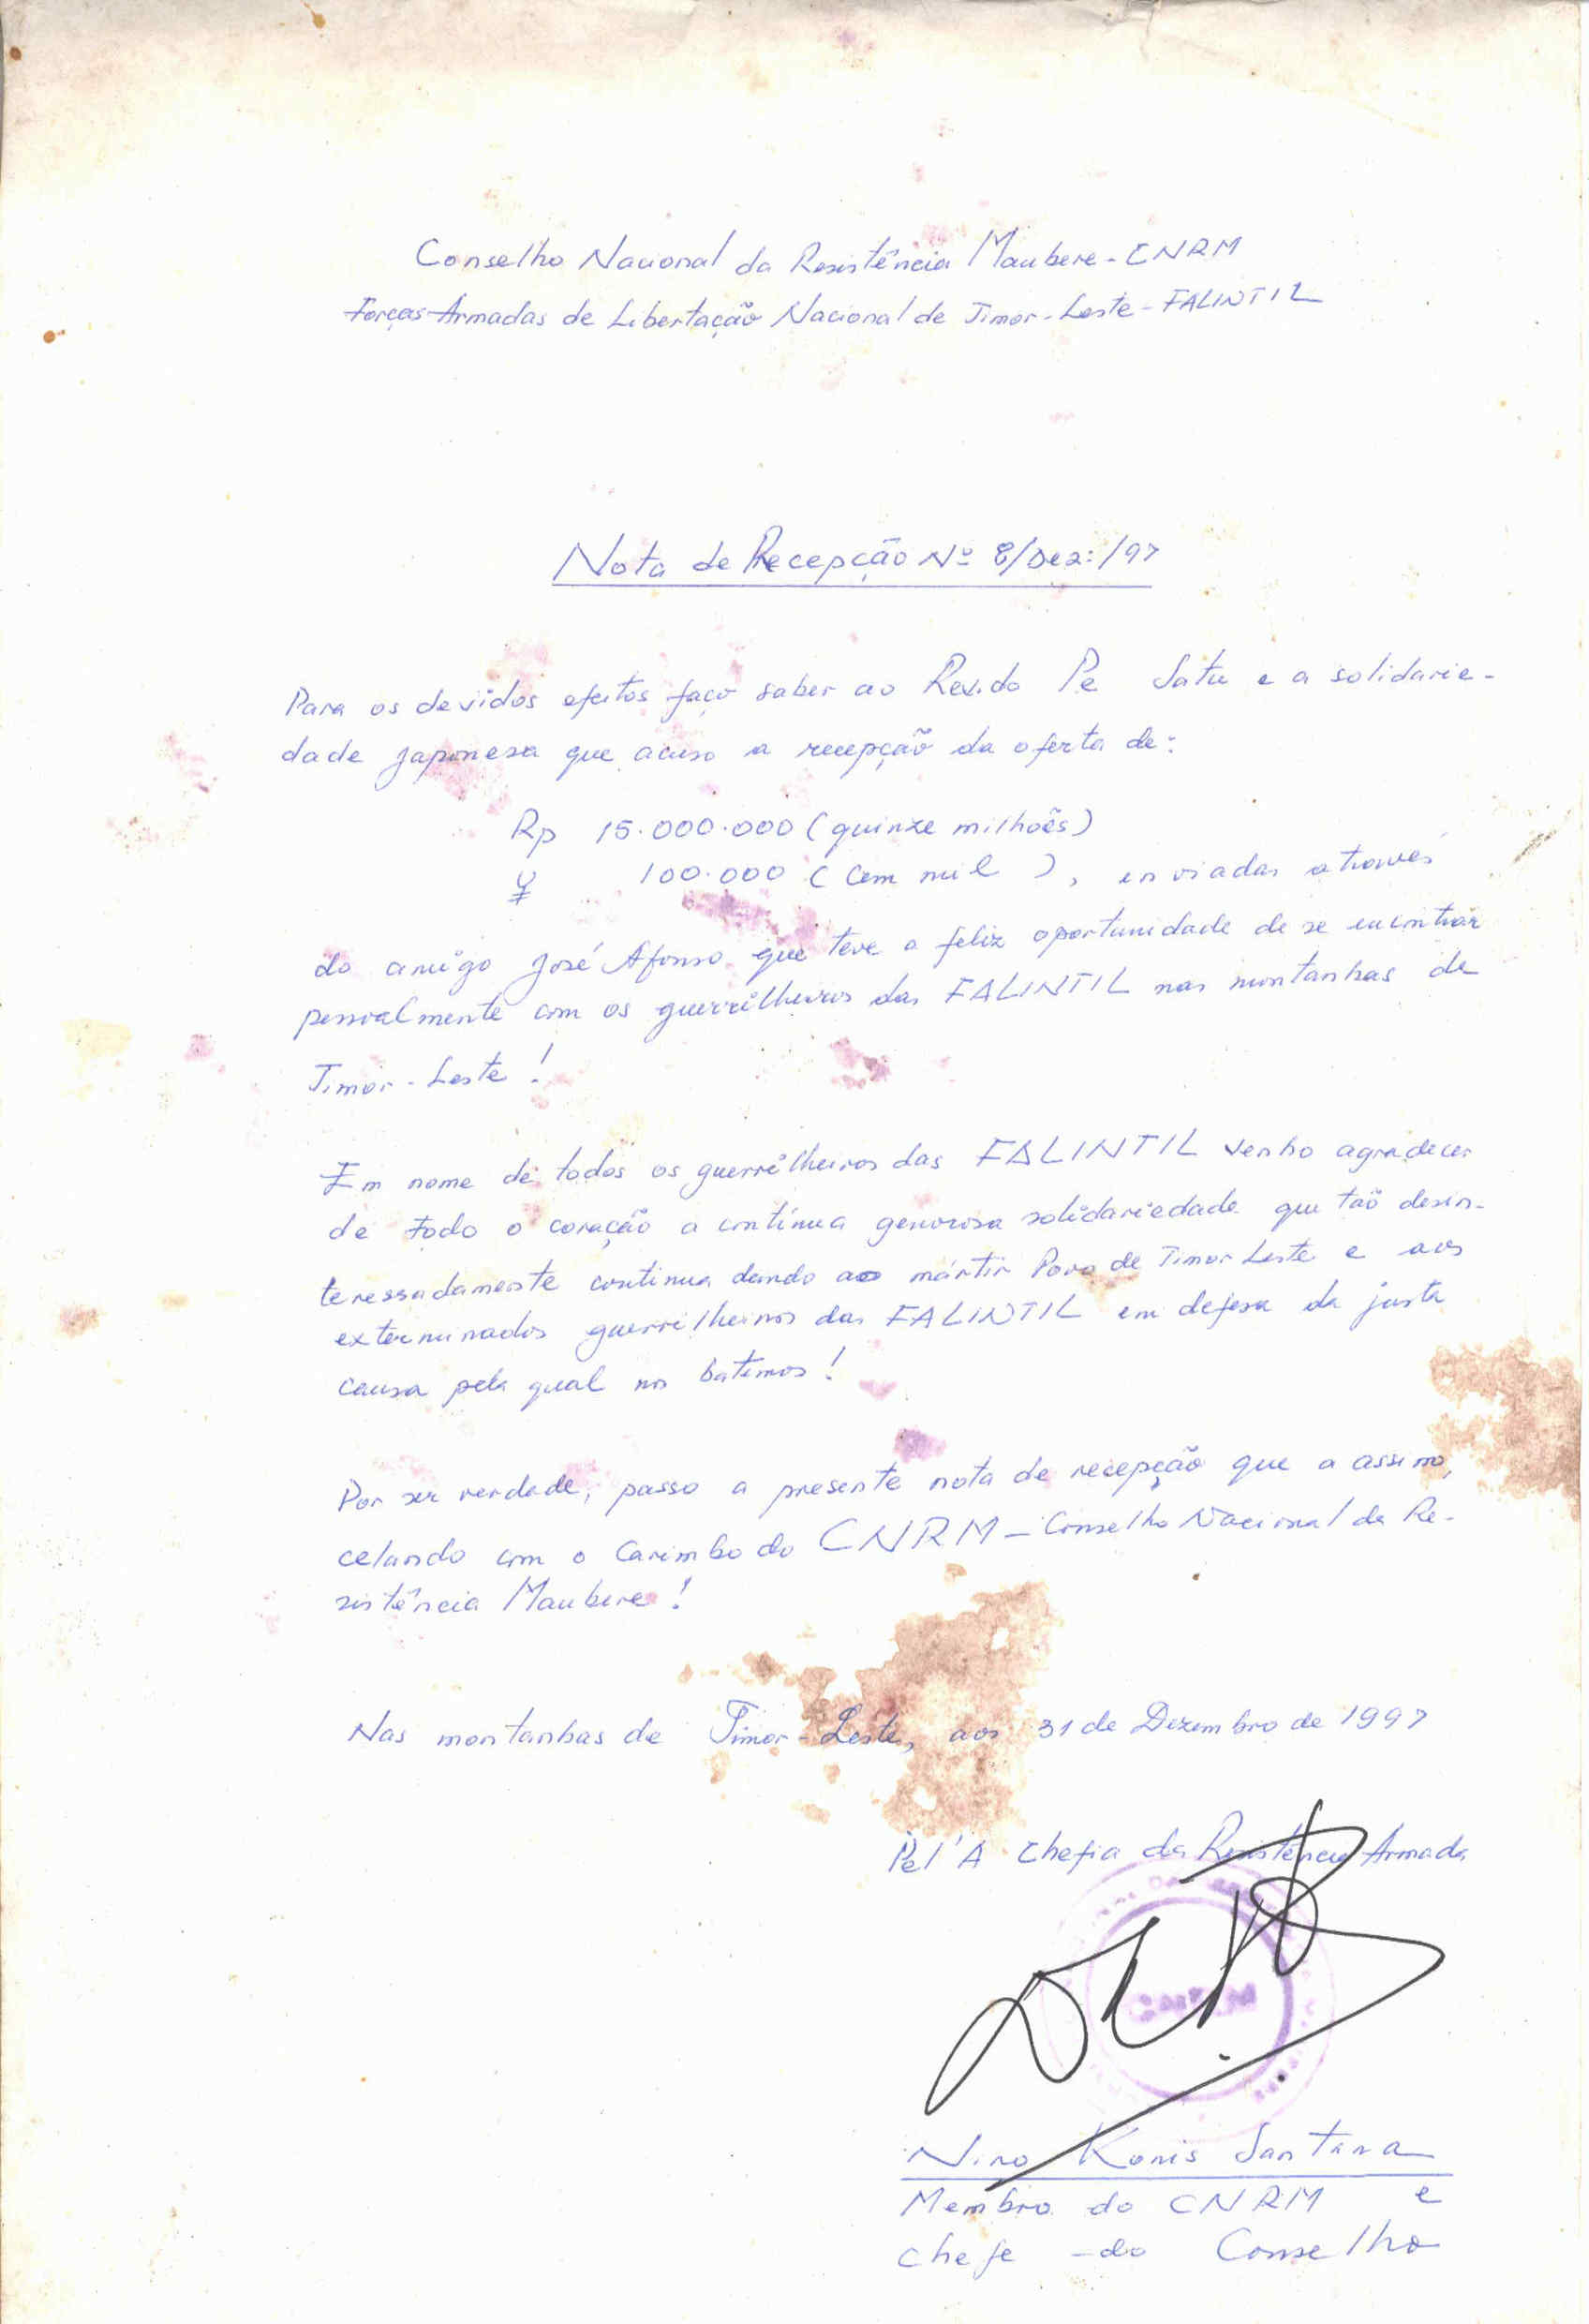 Conselho Nacional da Resistência Maubere - CNRM
Forças Armadas de Libertação Nacional de Timor-Leste - FALINTIL
Nota de Recepção Nº 8/Dez:/97
Para os devidos efeitos faço saber ao Rev.do Pe Satu e a solidarie-
dade japonesa que acuso a recepção da oferta de:
Rp 15.000.000 (quinze milhões)
¥ 100.000 (cem mil ), enviadas através
do amigo José Afonso que teve a feliz oportunidade de se encontrar
pessoalmente com os guerrilheiros das FALINTIL nas montanhas de
Timor-Leste !
Em nome de todos os guerrilheiros das FALINTIL venho agradecer
de todo o coração a contínua generosa solidariedade que tão desin-
teressadamente continua dando ao mártir Povo de Timor Leste e aos
exterminados guerrilheiros das FALINTIL em defesa da justa
causa pela qual nos batemos !
Por ser verdade, passo a presente nota de recepção que a assino,
celando com o Carimbo do CNRM - Conselho Nacional da Re-
sistência Maubere !
Nas montanhas de Timor-Leste, aos 31 de Dezembro de 1997
Pel'A Chefia da Resistência Armada
Nino Konis Santana
Membro do CNRM e
chefe -do Conselho